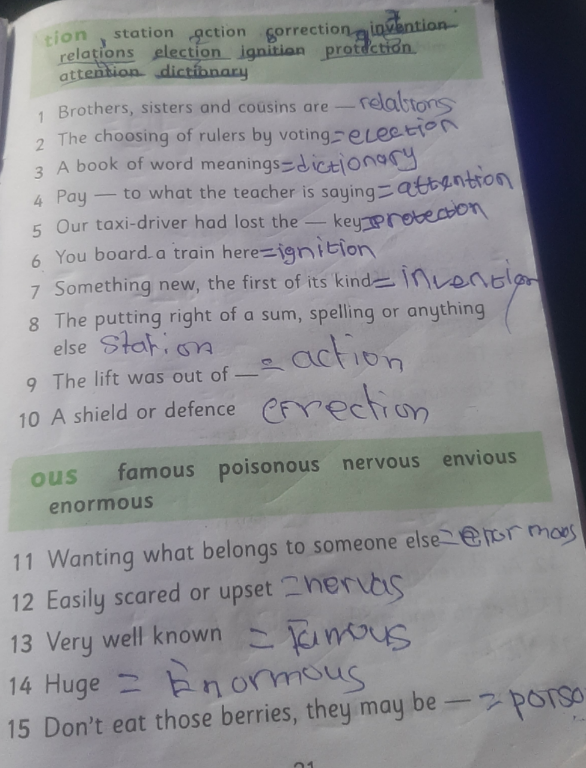 tion station action correction invention
relations election ignition protection
attention dictionary
1 Brothers, sisters and cousins are — relations
2 The choosing of rulers by voting = election
3 A book of word meanings = dictionary
4 Pay — to what the teacher is saying = attention
5 Our taxi-driver had lost the — key protection
6 You board a train here = ignition
7 Something new, the first of its kind = invention
8 The putting right of a sum, spelling or anything
else station
9 The lift was out of — = action
10 A shield or defence
ous famous poisonous nervous envious
enormous
11 Wanting what belongs to someone else =
12 Easily scared or upset = nervas
13 Very well known = Famous
14 Huge = Enormous
15 Don't eat those berries, they may be — =